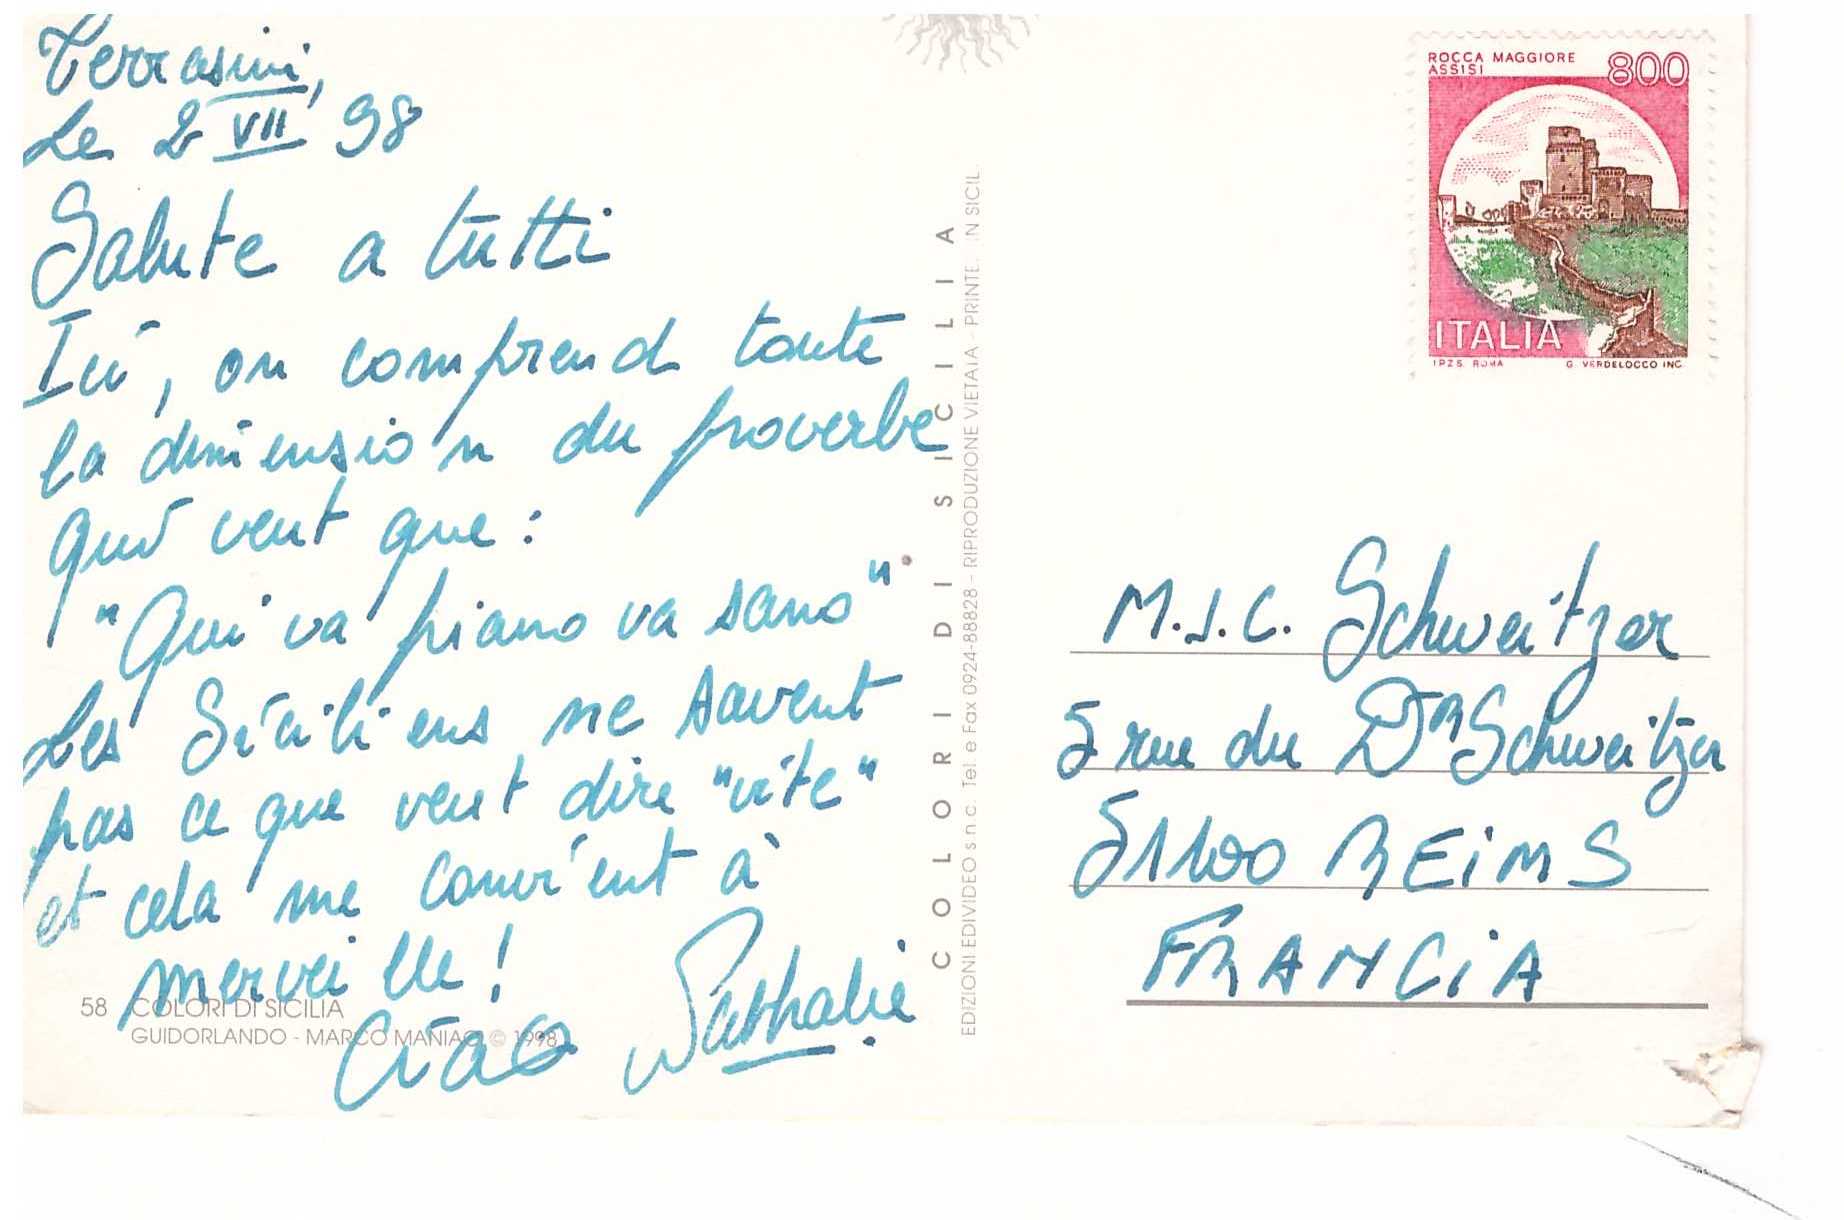 Terrasini,
Le 2 VII 98
Salute a tutti
Ici, on comprend toute
la dimension du proverbe
qui veut que :
"Qui va piano va sano"
Les Siciliens ne savent
pas ce que veut dire "vite"
et cela me convient à
merveille !
Ciao Nathalie.
58 COLORI DI SICILIA
GUIDORLANDO - MARCO MANIACI © 1998
COLORI DI SICILIA
EDIZIONI EDIVIDEO s.n.c. Tel. e Fax 0924-88828 - RIPRODUZIONE VIETATA - PRINTE. IN SICIL.
ROCCA MAGGIORE
ASSISI
800
ITALIA
I.P.Z.S. ROMA G. VERDELOCCO INC.
M.J.C. Schweitzer
5 rue du DR Schweitzer
51100 REIMS
FRANCIA